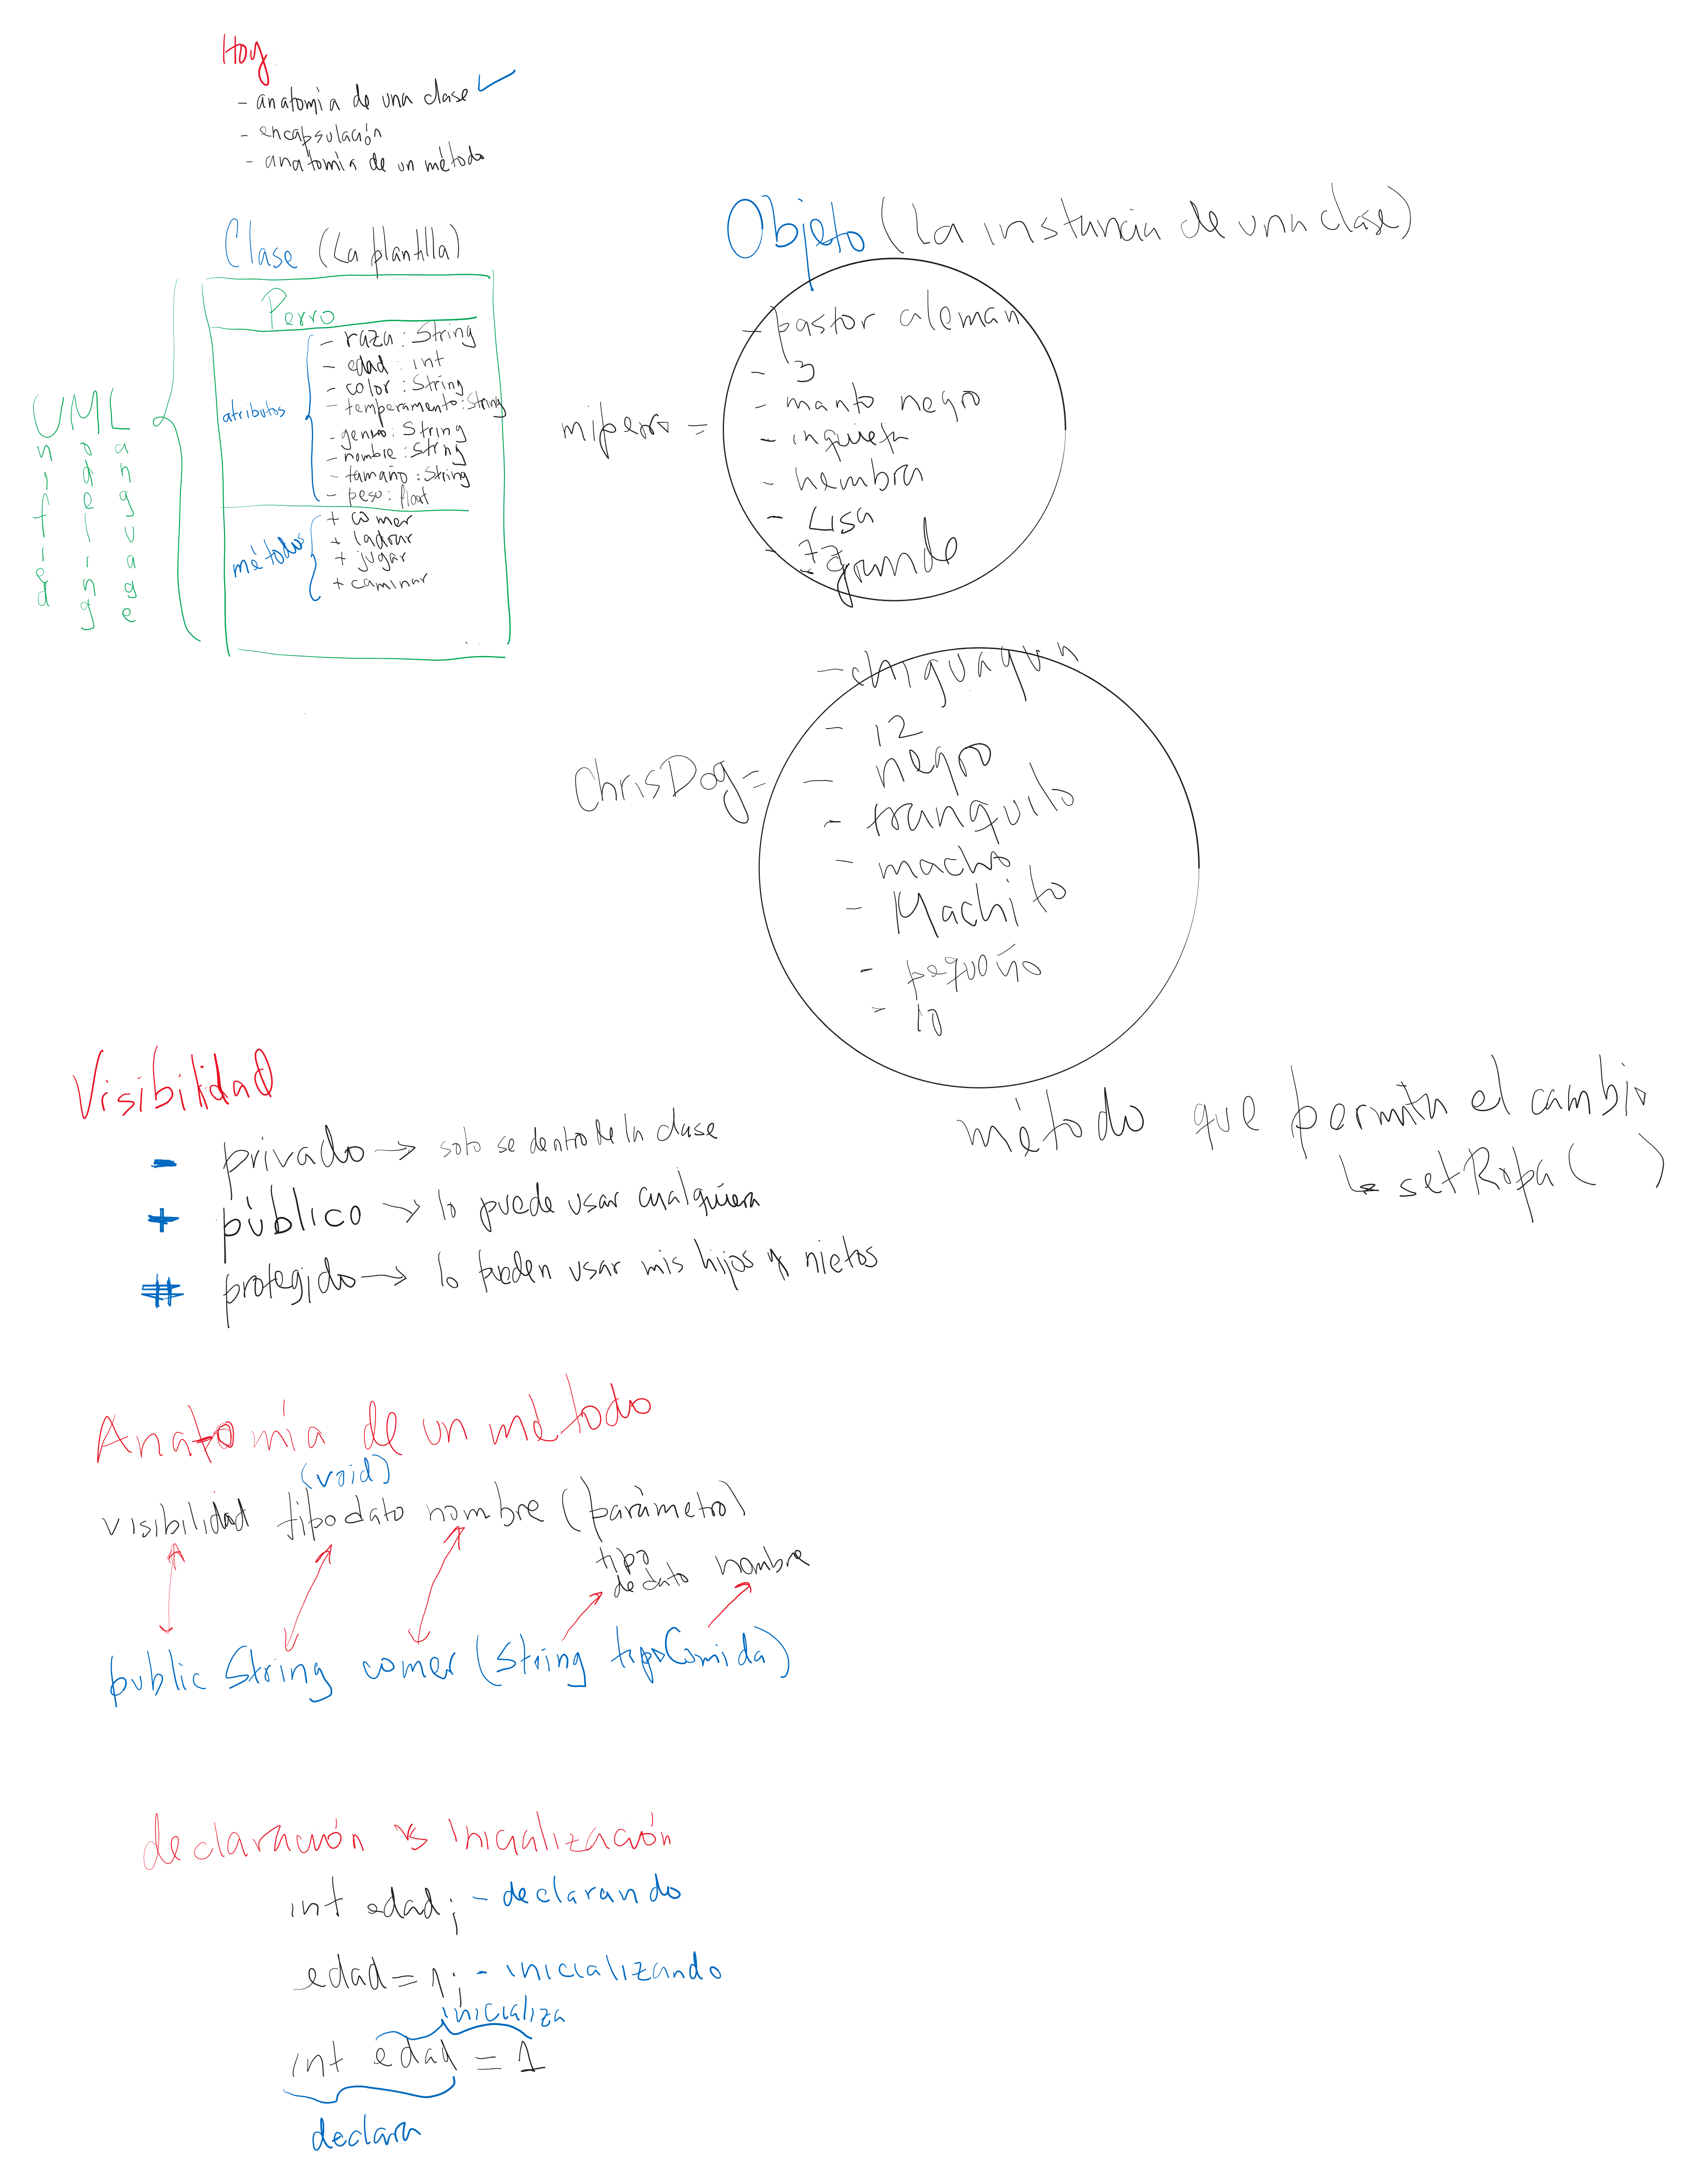 Hoy
- anatomia de una clase
- encapsulación
- anatomia de un método
Clase (La plantilla)
Perro
atributos
- raza: String
- edad: int
- color: String
- temperamento: String
- genero: String
- nombre: String
- tamaño: String
- peso: float
métodos
+ comer
+ ladrar
+ jugar
+ caminar
UML
Unified
Modeling
Language
Objeto (La instancia de una clase)
miperro =
- pastor aleman
- 3
- manto negro
- inquieta
- hembra
- Lisa
- grande
ChrisDog =
- chiguagua
- 12
- negro
- tranquilo
- macho
- Machito
- pequeño
- 10
Visibilidad
- privado → solo se dentro de la clase
+ público → lo puede usar cualquiera
# protegido → lo pueden usar mis hijos y nietos
método que permita el cambio
↳ setRopa( )
Anatomía de un método
(void)
visibilidad tipo dato nombre (parámetro)
tipo de dato nombre
public String comer (String tipoComida)
declaración vs inicialización
int edad; - declarando
edad = 1; - inicializando
inicializa
int edad = 1
declara